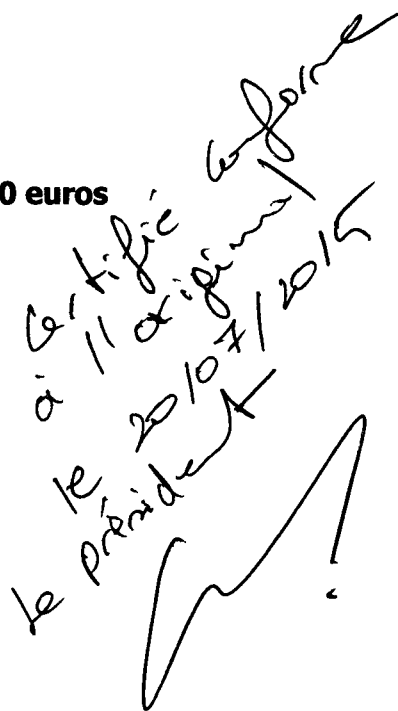 0 euros
Certifié conforme
à l'original
le 20/07/2015
Le président